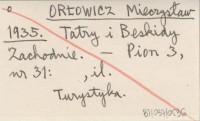 ORŁOWICZ Mieczysław
1935. Tatry i Beskidy
Zachodnie. — Pion 3,
nr 31: , il.
Turystyka.